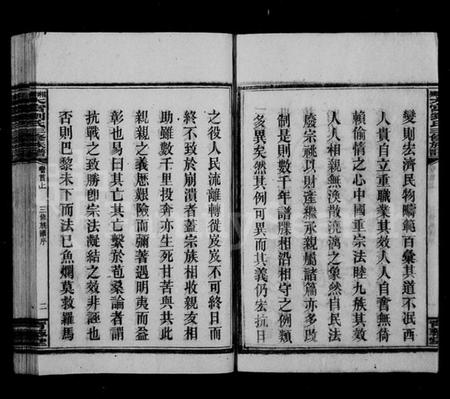 變則宏濟民物疇範百彙其道不泯西
人貴自立重職業其效人人自奮無倚
賴偷惰之心中國重宗法睦九族其效
人人相親無渙散澆漓之象然自民法
廢宗祧以財產繼承親屬諸篇亦多改
制是則數千年譜牒相沿相守之例類
多異矣然其例可異而其義仍宏抗日
之役人民流離轉徙岌岌不可終日而
終不致於崩潰者蓋宗族相收親友相
助雖數千里投奔亦生死甘苦與共此
親親之義歷艱險而彌著遇明夷而益
彰也易曰其亡其亡繫於苞桑論者謂
抗戰之致勝卽宗法凝結之效非誣也
否則巴黎未下而法已魚爛莫救羅馬
卷首上
三修族譜序
二